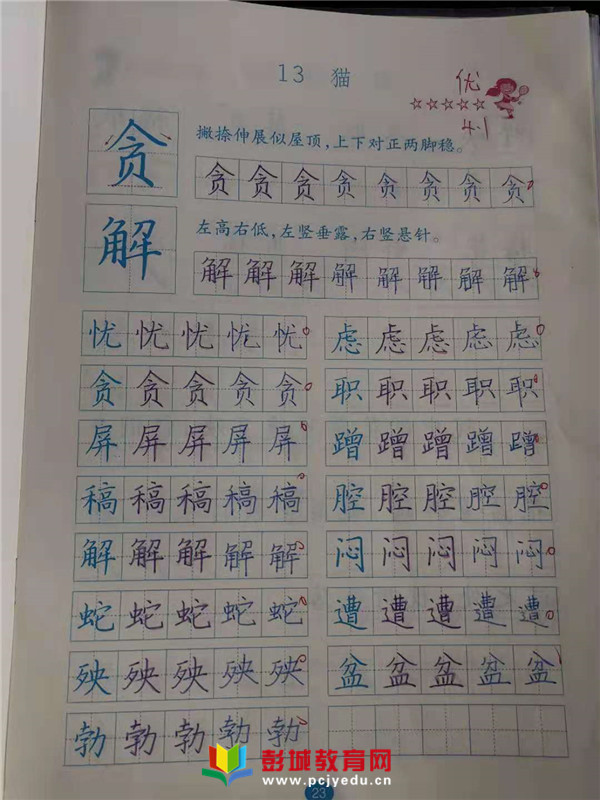 13 猫
优
☆☆☆☆☆
4.1
贪
撇捺伸展似屋顶，上下对正两脚稳。
贪贪贪贪贪贪贪贪
解
左高右低，左竖垂露，右竖悬针。
解解解解解解解解
忧忧忧忧忧 虑虑虑虑虑
贪贪贪贪贪 职职职职职
屏屏屏屏屏 蹭蹭蹭蹭蹭
稿稿稿稿稿 腔腔腔腔腔
解解解解解 闷闷闷闷闷
蛇蛇蛇蛇蛇 遭遭遭遭遭
殃殃殃殃殃 盆盆盆盆盆
勃勃勃勃勃
彭城教育网
www.pcjyedu.cn
23